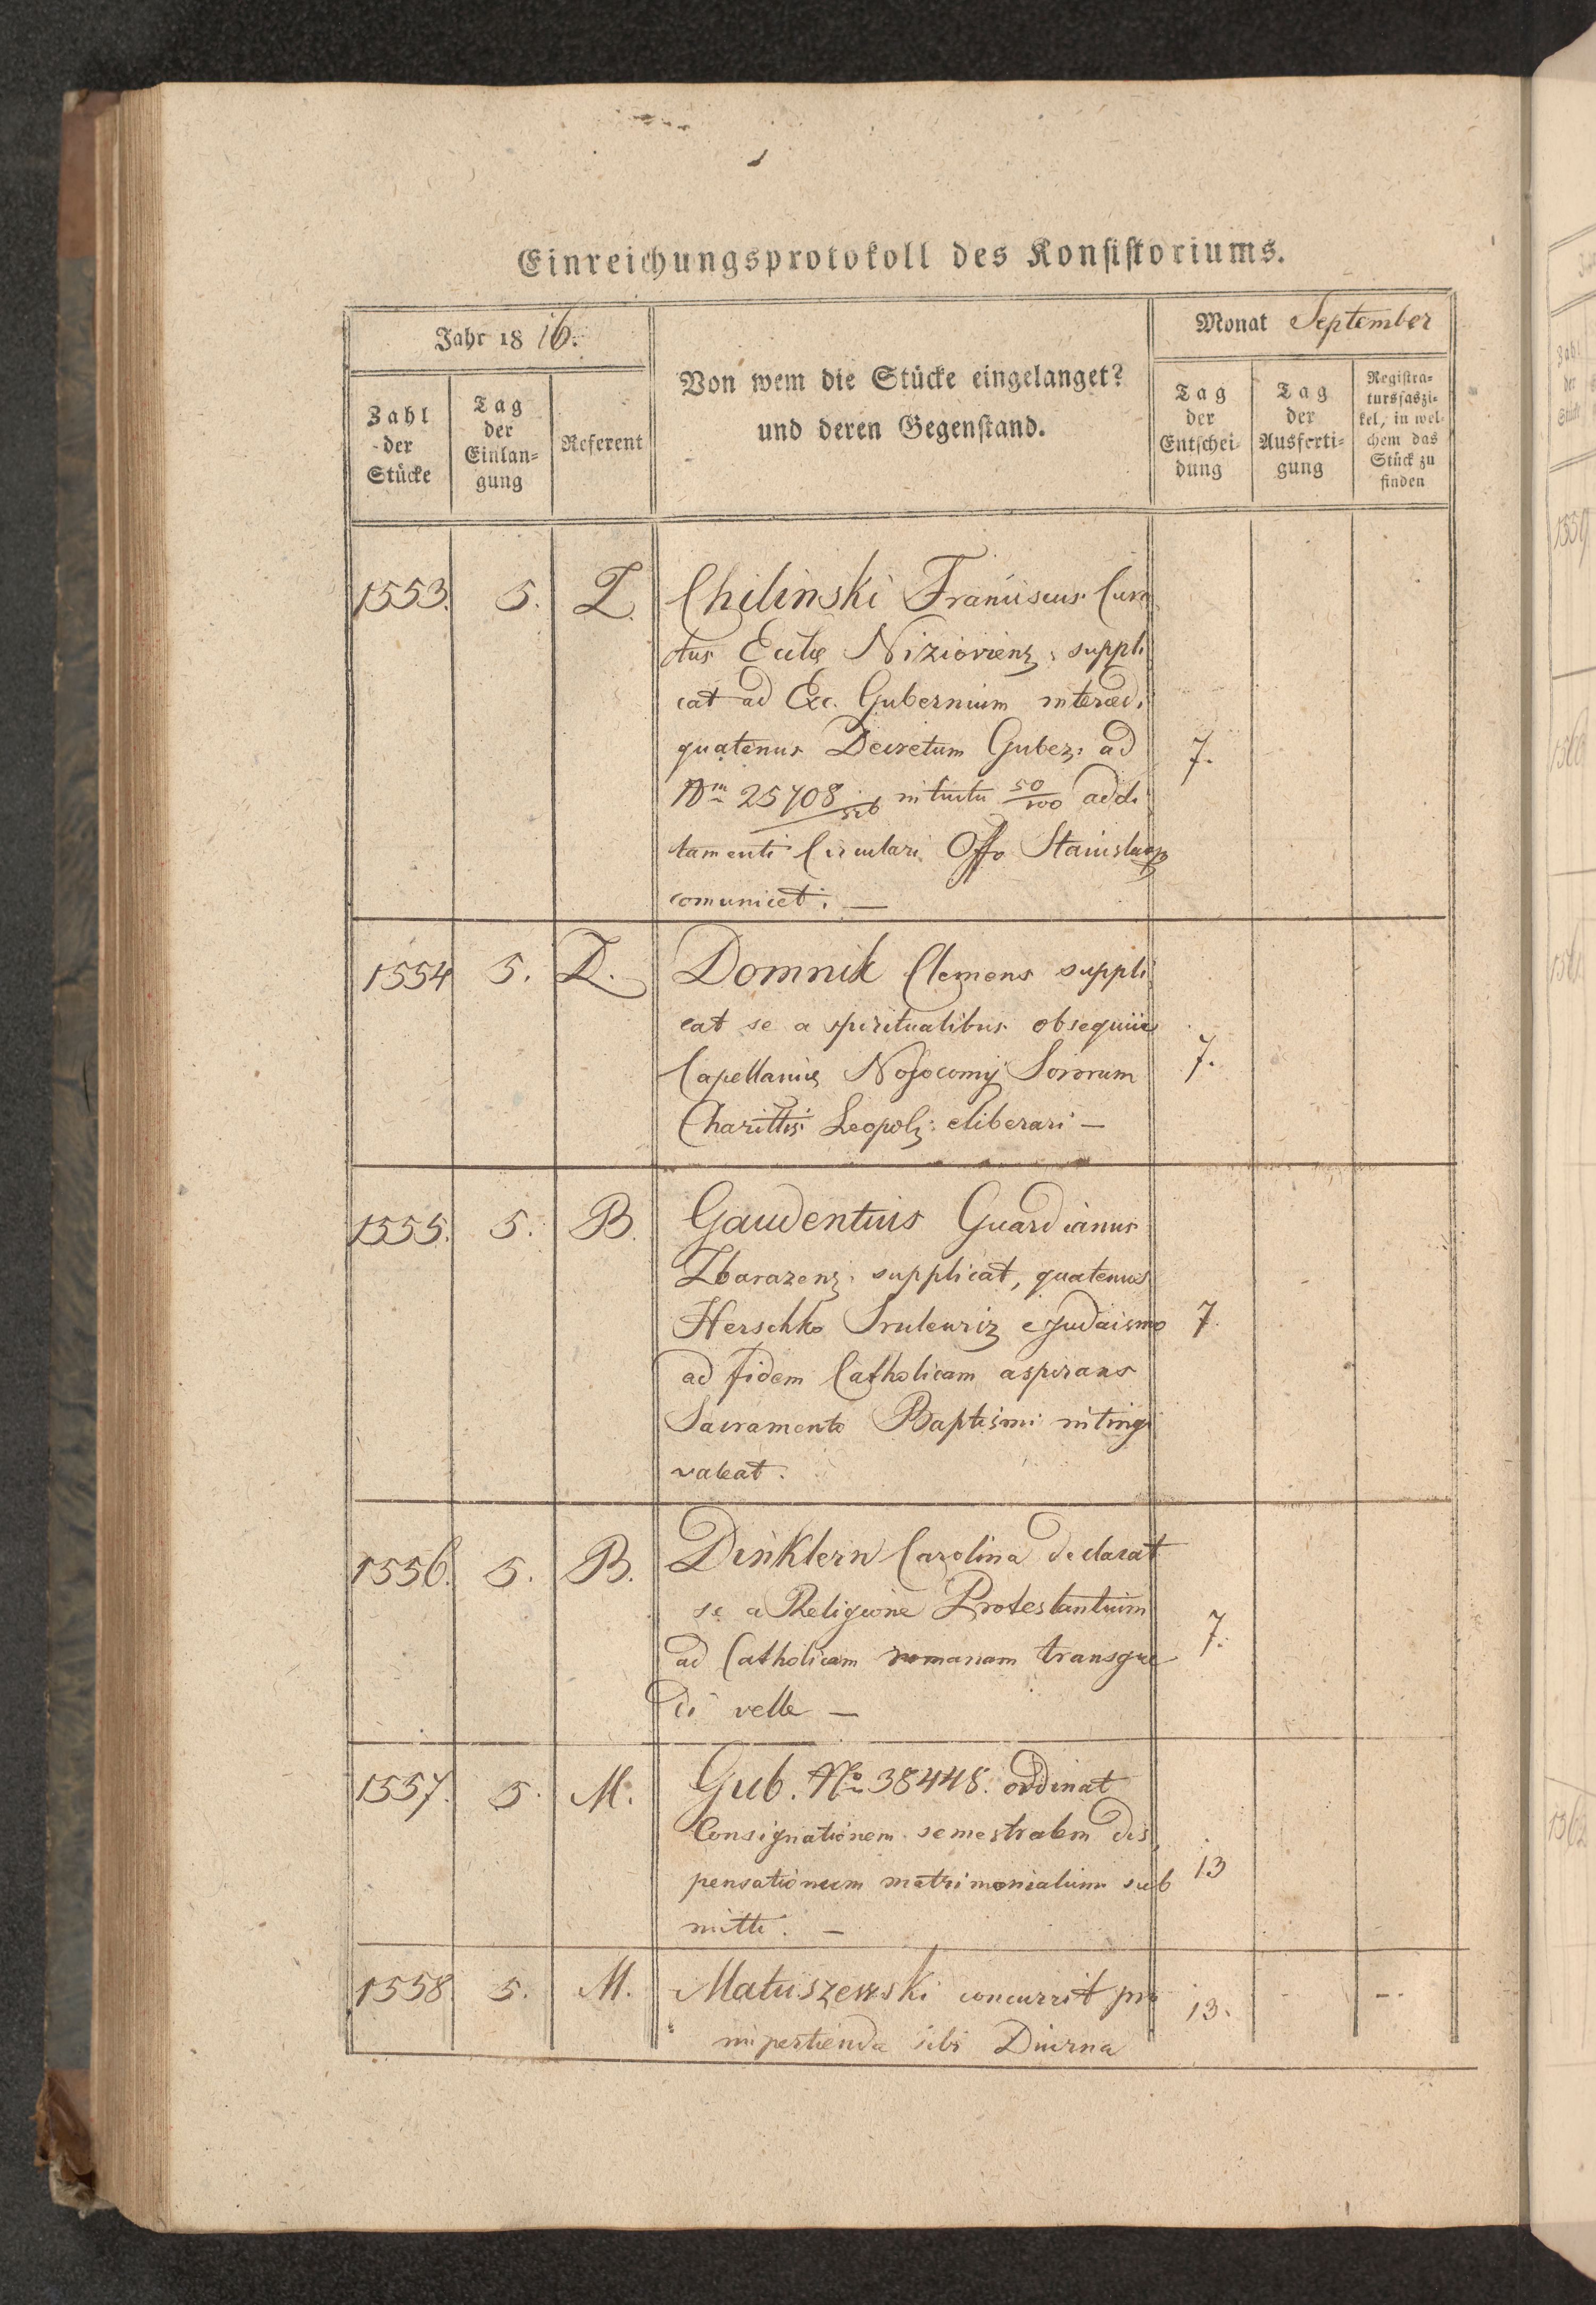 Einreichungsprotokoll des Konsistoriums.
Jahr 1816.
Monat September
Zahl der Stücke
Tag der Einlangung
Referent
Von wem die Stücke eingelanget?
und deren Gegenstand.
Tag der Entscheidung
Tag der Ausfertigung
Registratursfaszikel, in welchem das Stück zu finden
1553. 5. Z. Chilinski Franciscus Cura
tus Eccliæ Niziovienz: suppli
cat ad Exc. Gubernium interced:
quatenus Decretum Guber: ad 7.
Nm 25708 intuitu 50/100 addi
tamenti Circulari Offo Stanislaop
comunicet: —
1554 5. Z. Domnik Clemens suppli
cat se a spiritualibus obsequiis
Capellaniæ Nosocomij Sororum 7.
Charittis Leopolz: eliberari —
1555. 5. B. Gaudentius Guardianus
Zbarazenz: supplicat, quatenus
Herschko Sruleuriz e Judaismo 7.
ad fidem Catholicam aspirans
Sacramento Baptismi intingi
valeat.
1556. 5. B. Dinklern Carolina declarat
se a Religione Protestantium
ad Catholicam romanam transgre 7.
di velle —
1557. 5. M. Gub. No 38448. ordinat
Consignationem semestralem dis
pensationum matrimonialium sub 13
mitti. —
1558 5. M. Matuszewski concurrit pro
impertienda sibi Diurna 13.